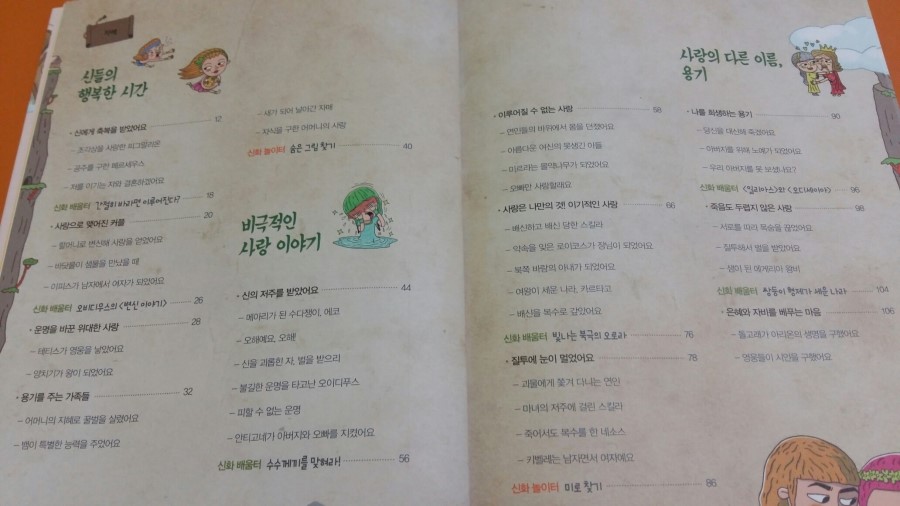 차례
신들의
행복한 시간
• 신에게 축복을 받았어요 12
– 조각상을 사랑한 피그말리온
– 공주를 구한 페르세우스
– 저를 이기는 자와 결혼하겠어요
신화 배움터 간절히 바라면 이루어진다? 18
• 사랑으로 맺어진 커플 20
– 할머니로 변신해 사랑을 얻었어요
– 바닷물이 샘물을 만났을 때
– 이피스가 남자에서 여자가 되었어요
신화 배움터 오비디우스의 <변신 이야기> 26
• 운명을 바꾼 위대한 사랑 28
– 테티스가 영웅을 낳았어요
– 양치기가 왕이 되었어요
• 용기를 주는 가족들 32
– 어머니의 지혜로 꿀벌을 살렸어요
– 뱀이 특별한 능력을 주었어요
– 새가 되어 날아간 자매
– 자식을 구한 어머니의 사랑
신화 놀이터 숨은 그림 찾기 40
비극적인
사랑 이야기
• 신의 저주를 받았어요 44
– 메아리가 된 수다쟁이, 에코
– 오해예요, 오해!
– 신을 괴롭힌 자, 벌을 받으리
– 불길한 운명을 타고난 오이디푸스
– 피할 수 없는 운명
– 안티고네가 아버지와 오빠를 지켰어요
신화 배움터 수수께끼를 맞혀라! 56
• 이루어질 수 없는 사랑 58
– 연인들의 바위에서 몸을 던졌어요
– 아름다운 여신의 못생긴 아들
– 미르라는 몰약나무가 되었어요
– 오빠만 사랑할래요
• 사랑은 나만의 것! 이기적인 사랑 66
– 배신하고 배신 당한 스킬라
– 약속을 잊은 로이코스가 장님이 되었어요
– 북쪽 바람의 아내가 되었어요
– 여왕이 세운 나라, 카르타고
– 배신을 복수로 갚았어요
신화 배움터 빛나는 북극의 오로라 76
• 질투에 눈이 멀었어요 78
– 괴물에게 쫓겨 다니는 연인
– 마녀의 저주에 걸린 스킬라
– 죽어서도 복수를 한 네소스
– 키벨레는 남자면서 여자예요
신화 놀이터 미로 찾기 86
사랑의 다른 이름,
용기
• 나를 희생하는 용기 90
– 당신을 대신해 죽겠어요
– 아버지를 위해 노예가 되었어요
– 우리 아버지를 못 보셨나요?
신화 배움터 <일리아스>와 <오디세이아> 96
• 죽음도 두렵지 않은 사랑 98
– 서로를 따라 목숨을 끊었어요
– 질투해서 벌을 받았어요
– 샘이 된 에게리아 왕비
신화 배움터 쌍둥이 형제가 세운 나라 104
• 은혜와 자비를 배우는 마음 106
– 돌고래가 아리온의 생명을 구했어요
– 영웅들이 시인을 구했어요